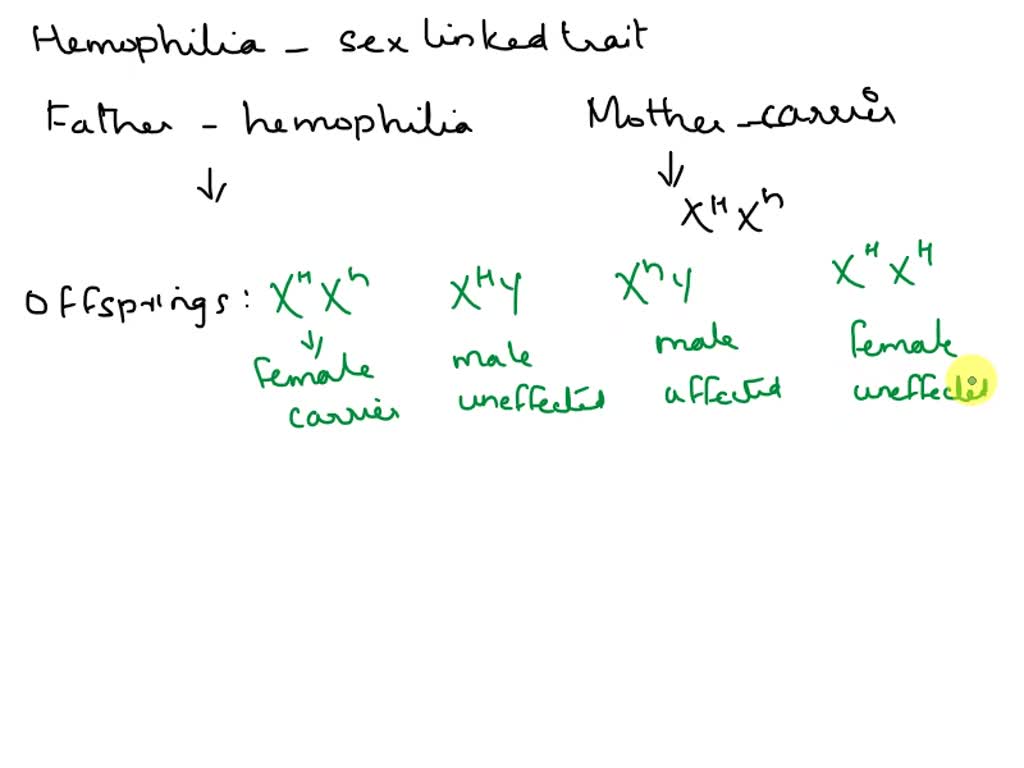 Hemophilia - sex linked trait
Father - hemophilia Mother - carrier
↓ ↓
X^H X^h
Offsprings: X^H X^h X^H Y X^h Y X^H X^H
↓
female male male female
carrier uneffected affected uneffected